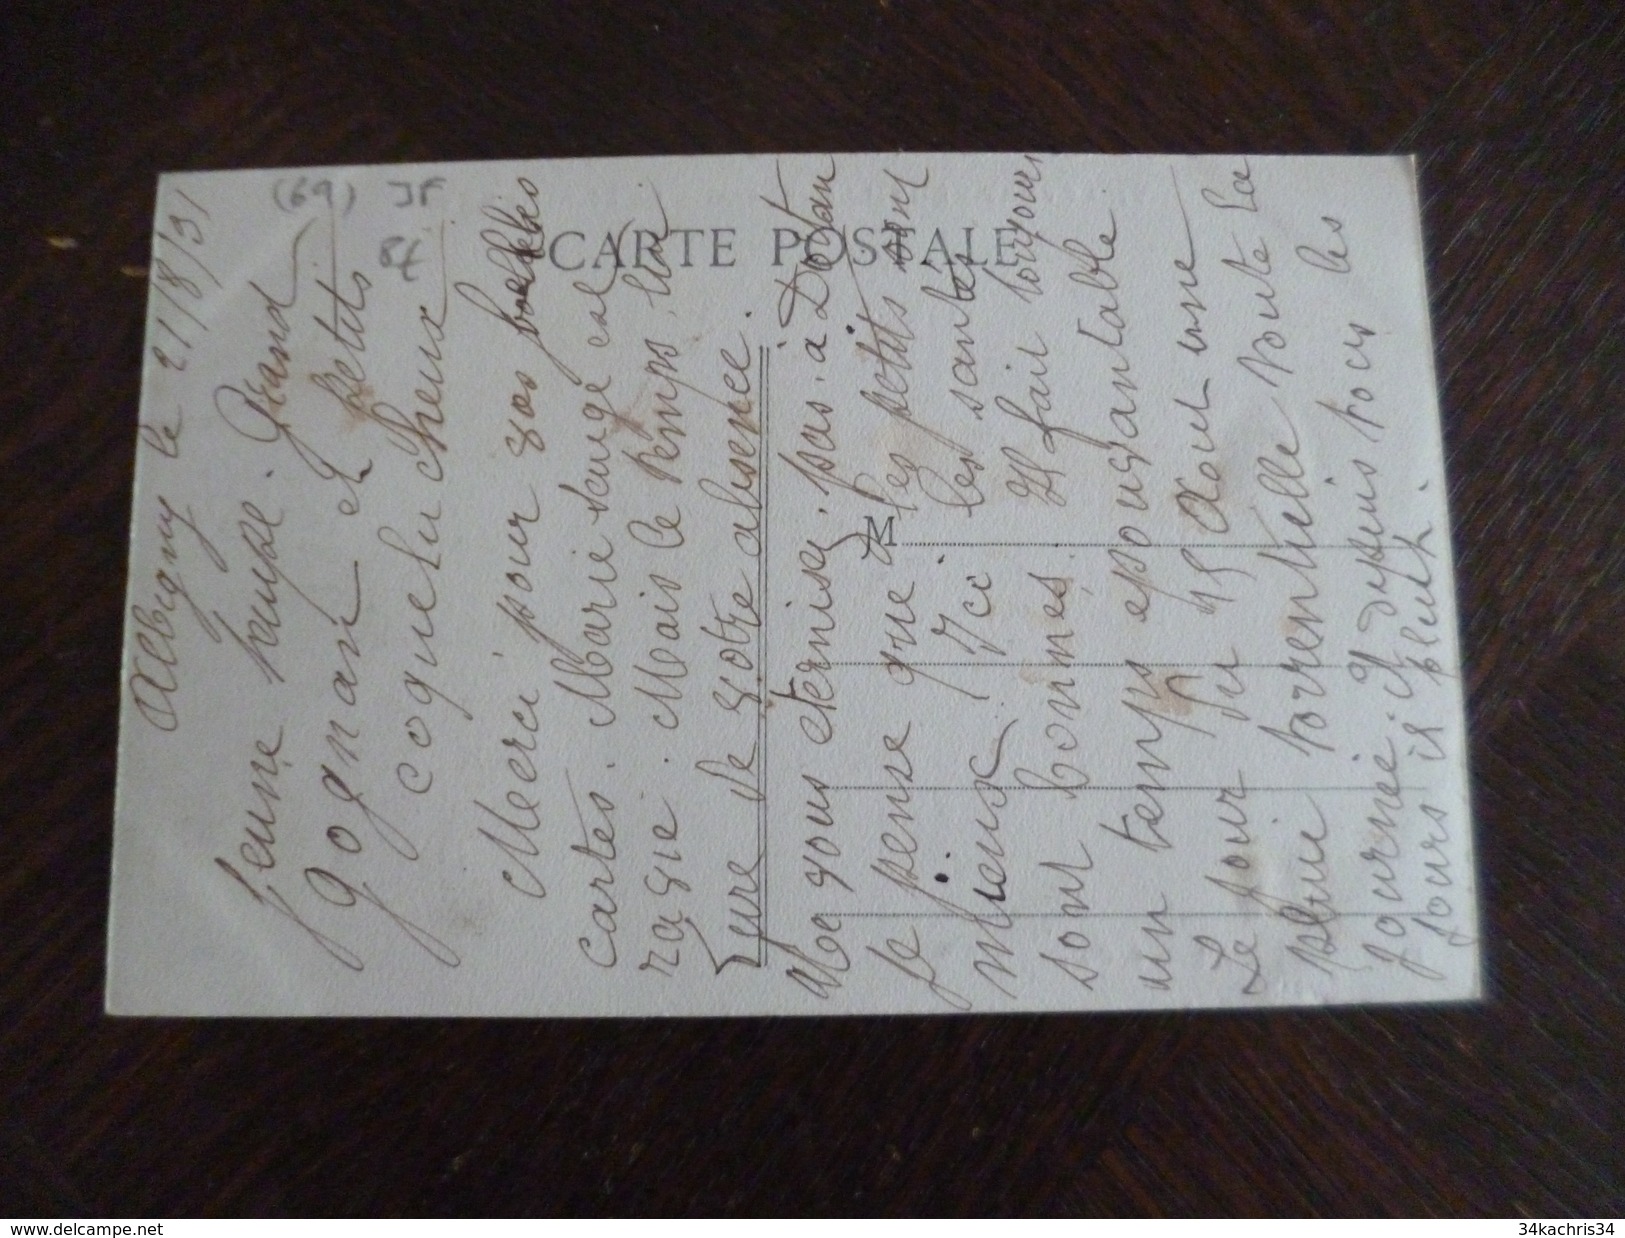 Albigny le 21/8/31
Jeune nièce. Grand
gognan et petits
coquelucheux
Merci pour vos belles
cartes. Marie rouge est
ravie. Mais le temps lui
dure de votre absence.
Ne vous eternisez pas à Dotan
Je pense que les petits vont
mieux. Ici les santés
sont bonnes. Il fait toujours
un temps epouvantable
Le jour du 15 Aout une
pluie torrentielle toute la
journée et depuis tous les
jours il pleut.
(69) JF
8€
CARTE POSTALE
M
www.delcampe.net
34kachris34